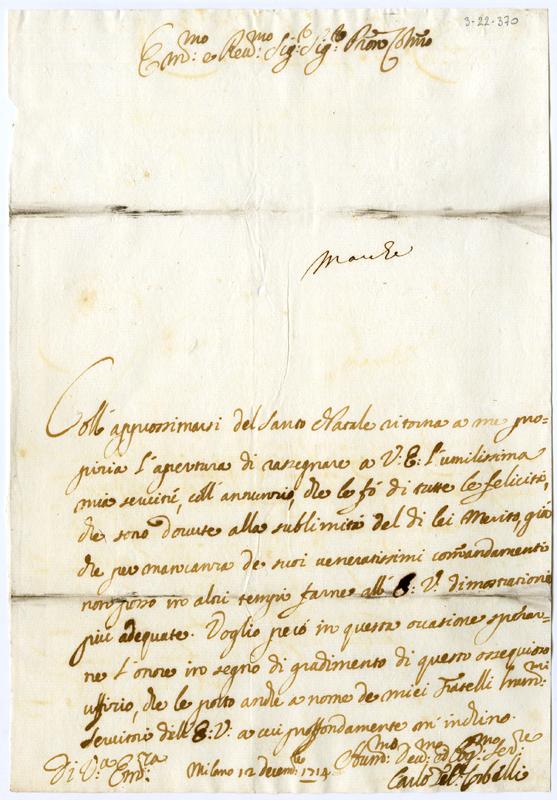 3-22-370
Em:mo e Rev:mo Sig:re Sig:re Pron Colmo
Coll'approssimarsi del Santo Natale ritorna a me pro=
piria l'apertura di rassegnare a V: E: l'umilissima
mia servitù, coll'annunzio, che le fò di tutte le felicità,
che sono dovute alla sublimità del di lei Merito, già
che per mancanza de suoi veneratissimi comandamenti
non posso in altri tempi farne all'E: V: dimostrazioni
più adequate. Voglio però in questa occasione sperar=
ne l'onore in segno di gradimento di questo ossequioso
uffizio, che le porto anche a nome de miei Fratelli hum:mi
servitori dell'E: V: a cui proffondamente m'inchino.
Di V:ra Em:za Milano 12 decemb:re 1714
Hum:mo Dev:mo ed Obg:mo Ser:re
Carlo